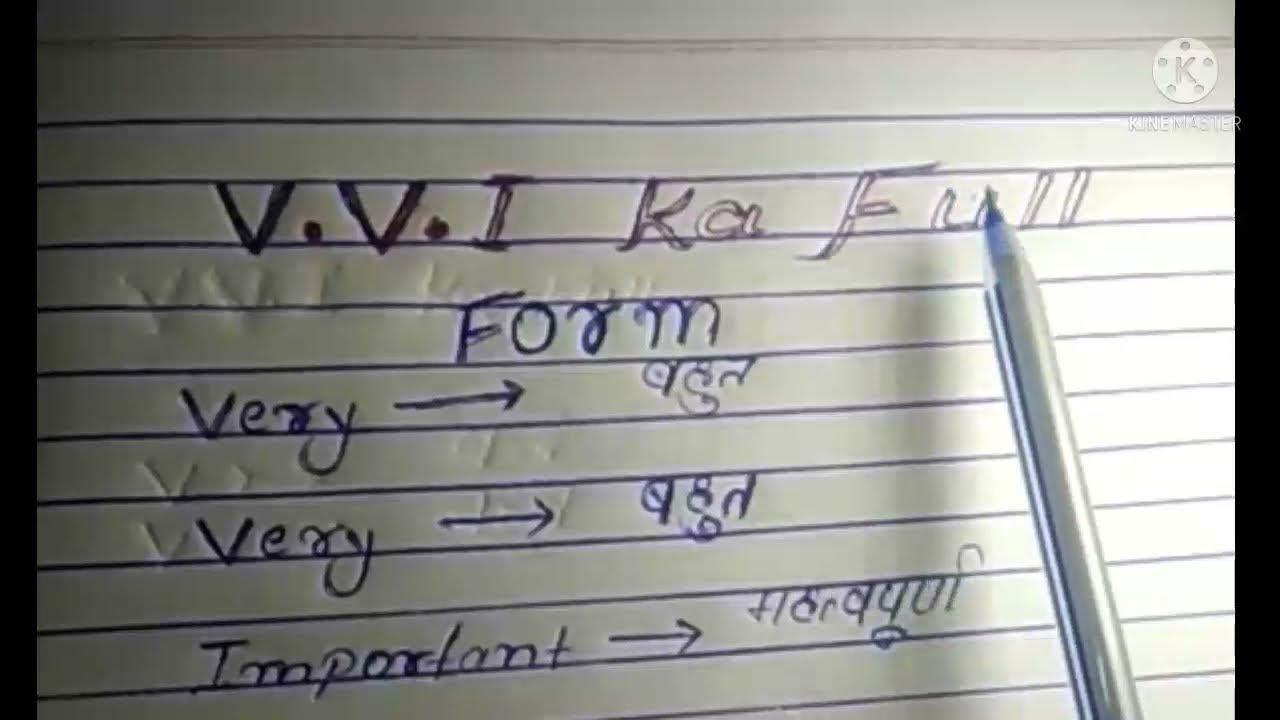 KINEMASTER
V.V.I Ka Full
Form
Very → बहुत
Very → बहुत
Important → महत्वपुर्ण